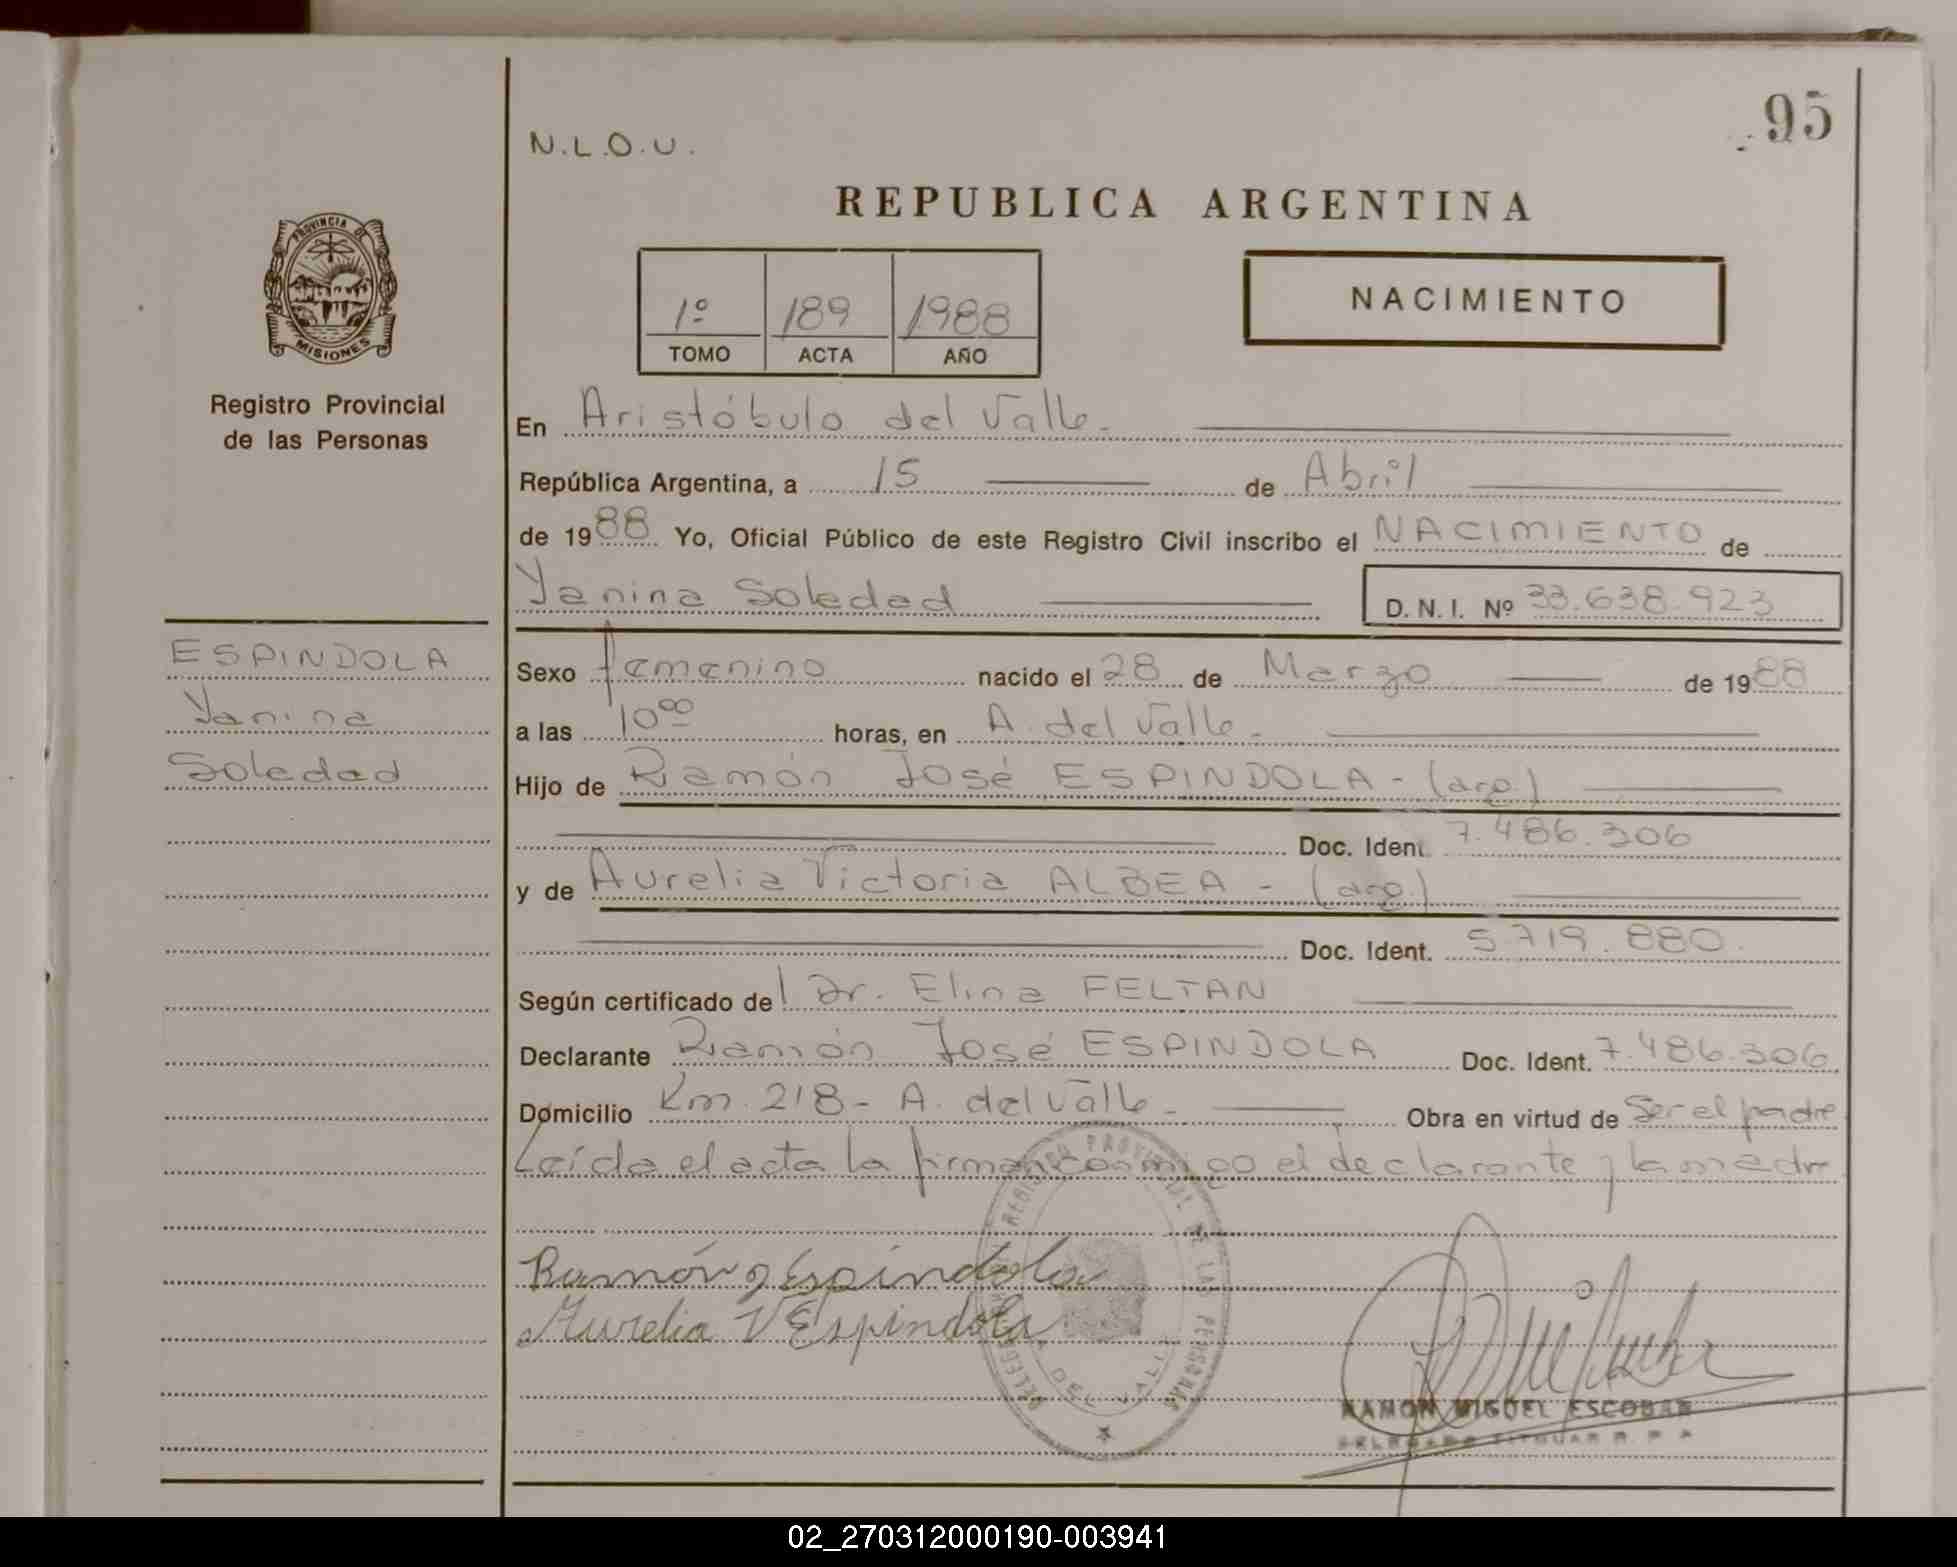 95
N.L.O.U.
REPUBLICA ARGENTINA
PROVINCIA DE
MISIONES
Registro Provincial
de las Personas
1º 189 1988
TOMO ACTA AÑO
NACIMIENTO
En Aristóbulo del Valle.
República Argentina, a 15 de Abril
de 1988 Yo, Oficial Público de este Registro Civil inscribo el NACIMIENTO de
Yanina Soledad D.N.I. Nº 33.638.923
ESPINDOLA
Yanina
Soledad
Sexo femenino nacido el 28 de Marzo de 1988
a las 10 00 horas, en A. del Valle.
Hijo de Ramón José ESPINDOLA - (arg.)
Doc. Ident. 7.486.306
y de Aurelia Victoria ALBEA - (arg.)
Doc. Ident. 5.719.880.
Según certificado del Dr. Elina FELTAN
Declarante Ramón José ESPINDOLA Doc. Ident. 7.486.306
Domicilio Km. 218 - A. del Valle - Obra en virtud de Ser el padre
Leída el acta la firman conmigo el declarante y la madre
Ramón J Espíndola
Aurelia V Espindola
REGISTRO PROVINCIAL DE LAS PERSONAS
DEL VALLE
RAMON MIGUEL ESCOBAR
02_270312000190-003941